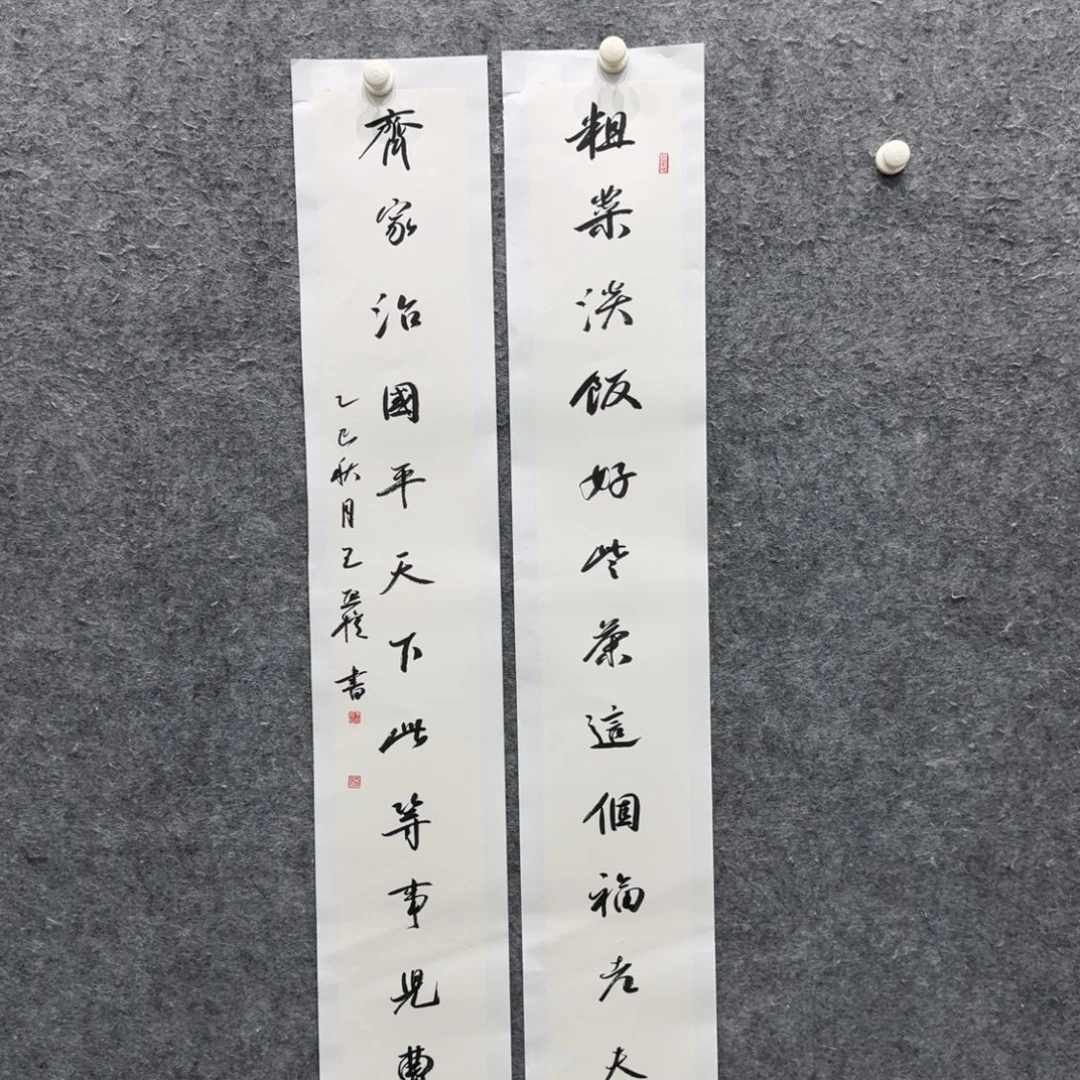 粗菜淡飯好些茶這個福老夫
齊家治國平天下此等事兒曹
乙巳秋月王書